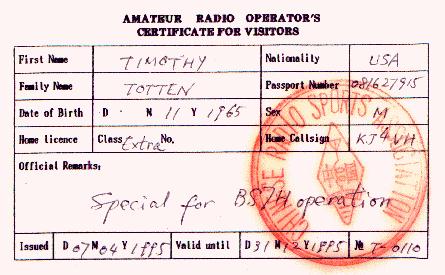 AMATEUR RADIO OPERATOR'S
CERTIFICATE FOR VISITORS
First Name TIMOTHY Nationality USA
Family Name TOTTEN Passport Number 081627915
Date of Birth D M 11 Y 1965 Sex M
Home licence Class Extra No. Home Callsign KJ4VH
Official Remarks:
Special for BS7H operation
Issued D 07 M 04 Y 1995 Valid until D 31 M 12 Y 1995 № T-0110
CHINESE RADIO SPORTS ASSOCIATION